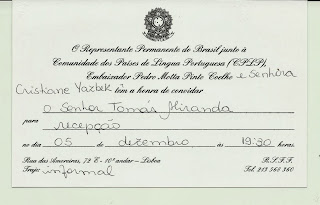 O Representante Permanente do Brasil junto à
Comunidade dos Países de Língua Portuguesa (CPLP),
Embaixador Pedro Motta Pinto Coelho e Senhora
Cristiane Yazbek têm a honra de convidar
o Senhor Tomás Miranda
para recepção
no dia 05 de dezembro às 19:30 horas.
Rua das Amoreiras, 72 C - 10º andar - Lisboa R.S.F.F.
Traje: informal Tel. 213 568 360